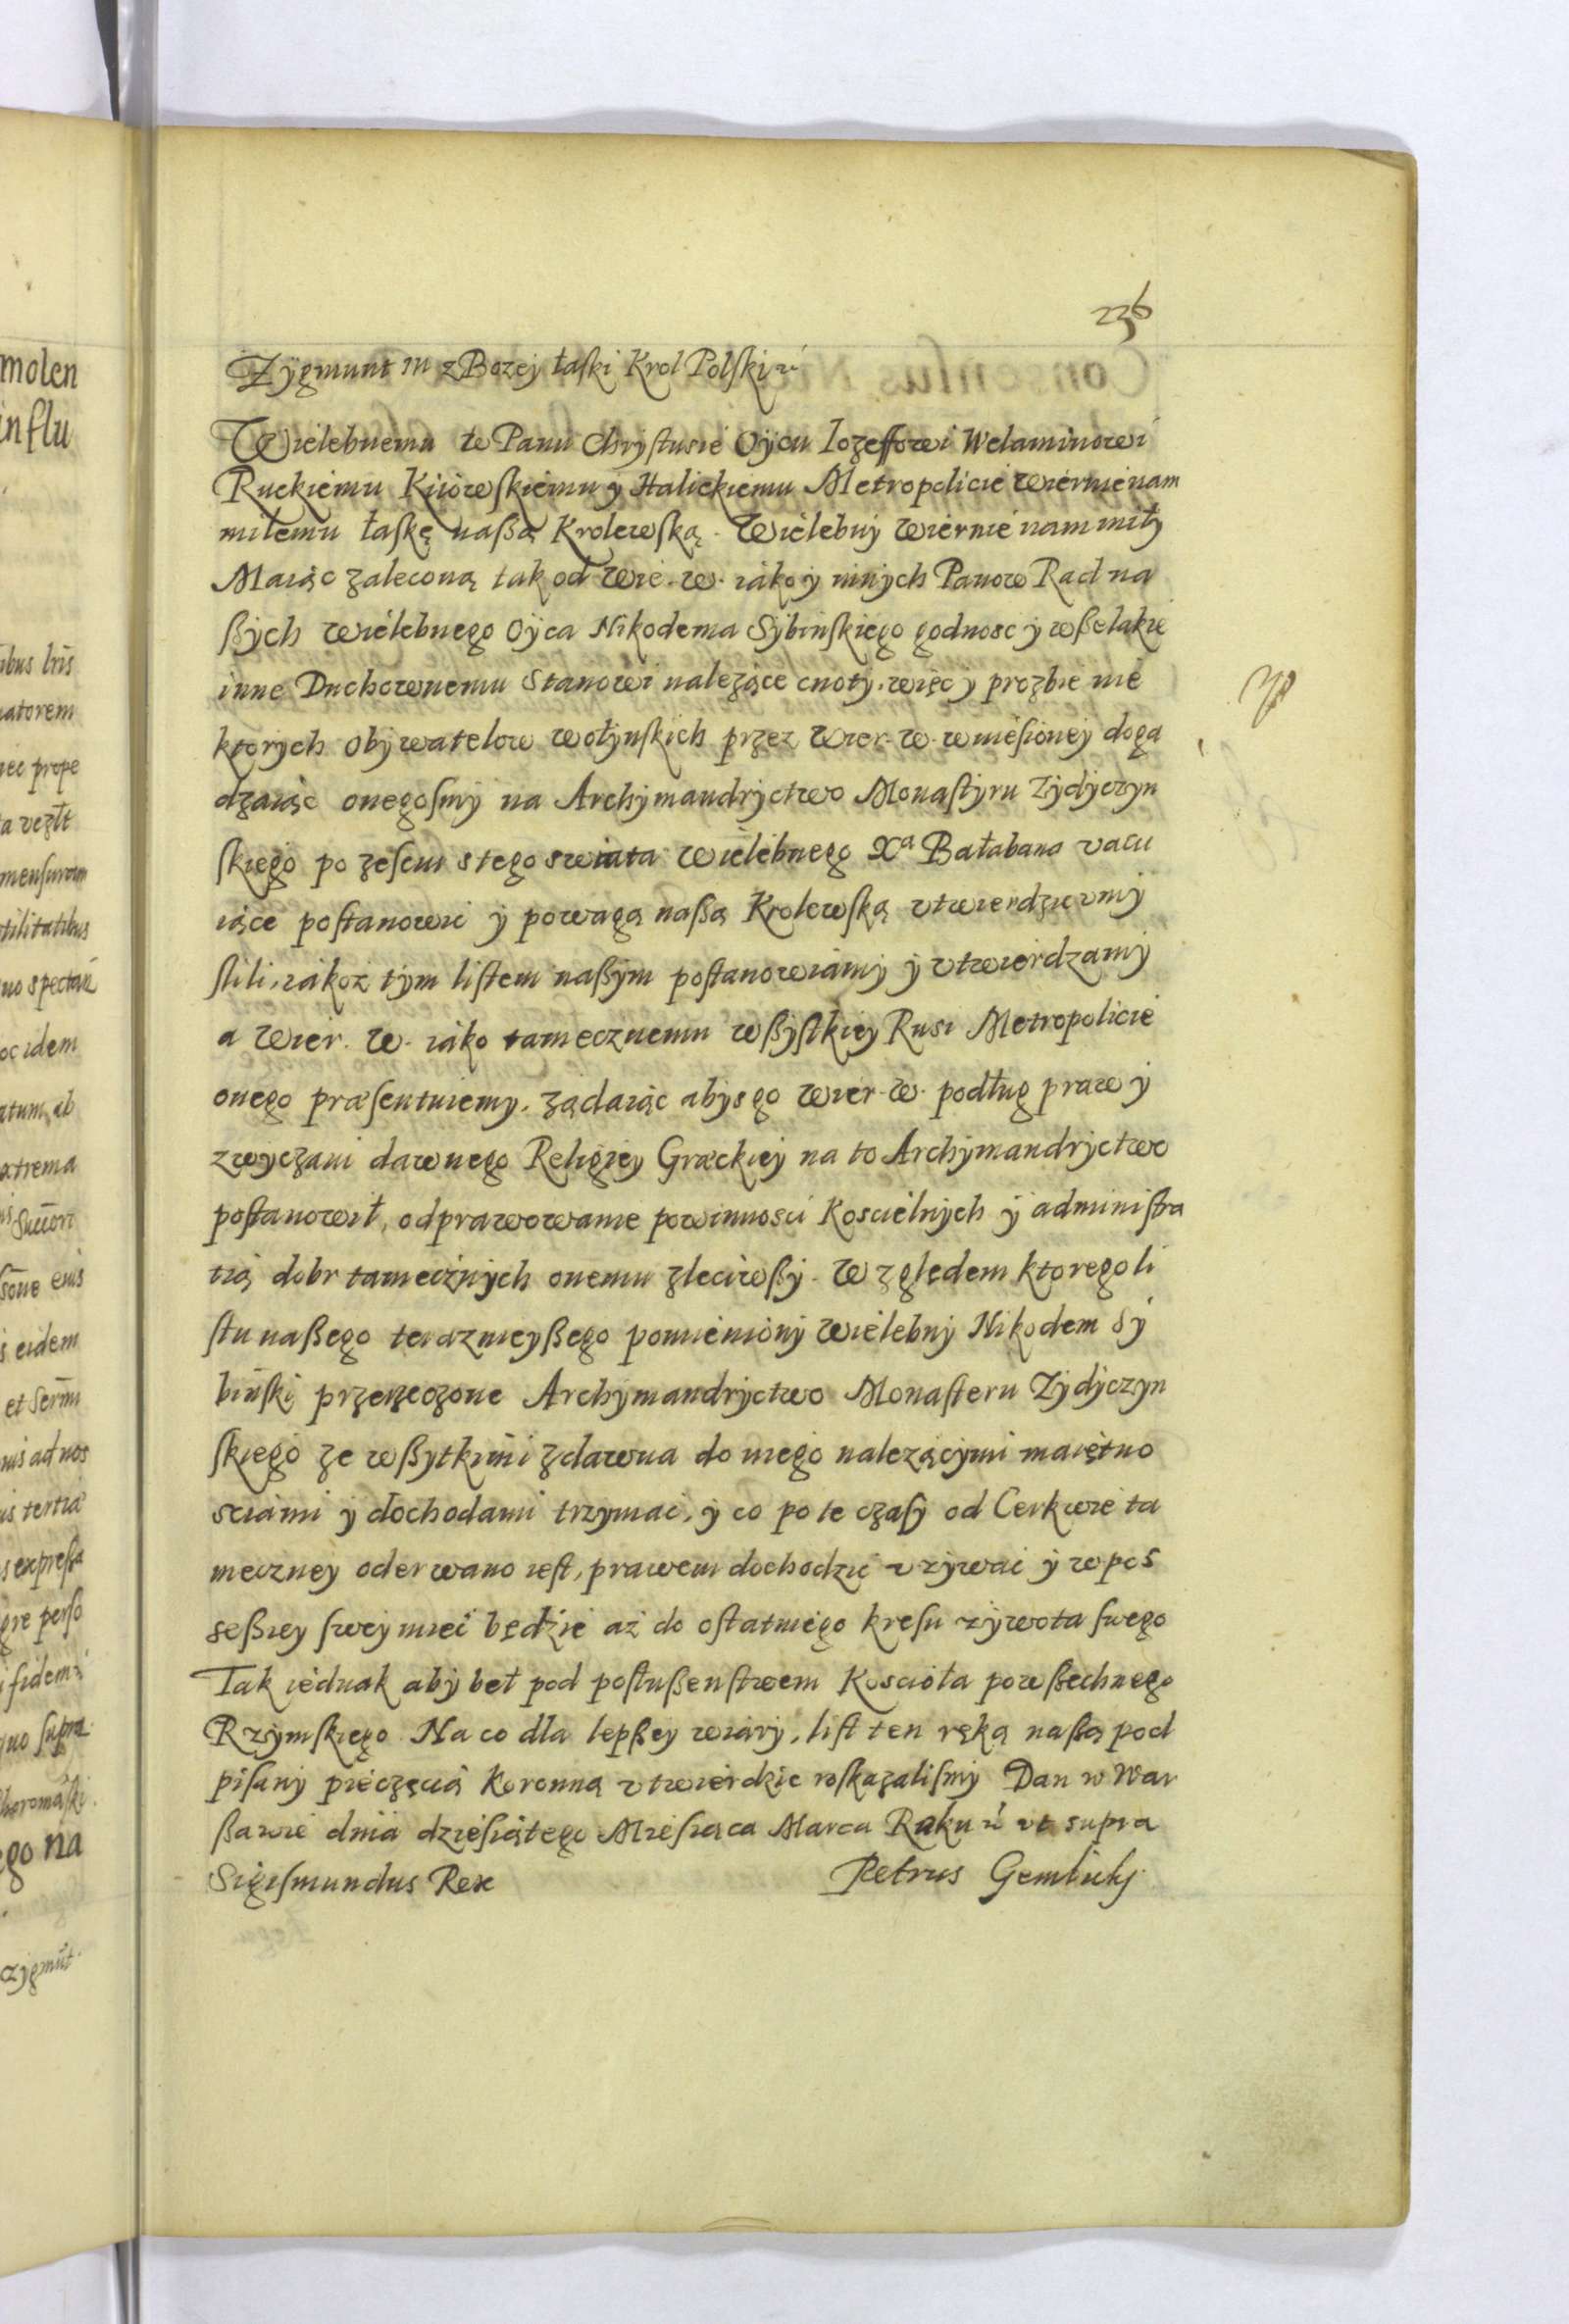 molen
influ
ibus lris
natorem
nec prope
a vezlt
mensuram
tilitatibus
no spectan
oc idem
atum, ab
extrema
sone eius
s eidem
et Serm
nis ad nos
is tertia
s expreßa
gre perso
i fidem
uo supra
horomaski.
ego na
czygmut
236
Zygmunt III z Bozey łaski Krol Polski ꝛć
Wielebnemu w Panu Chrystusie Oycu Iozeffowi Welaminowi
Ruckiemu Kiiowskiemu y Halickiemu Metropolicie wiernie nam
miłemu łaskę naßą Krolewską. Wielebny wiernie nam miły
Maiąc zaleconą tak od Wie. W. iako y innych Panow Rad na
ßych wielebnego Oyca Nikodema Sybinskiego godnosc y wßelakie
inne Duchownemu Stanowi nalezące cnoty, więc y prozbie nie
ktorych obywatelow wołynskich przez Wier. W. wniesioney doga
dzaiąc onegosmy na Archymandryctwo Monastyru Zydyczyn
skiego po zesciu s tego swiata Wielebnego Xa Bałabana vacu
iące postanowic y powagą naßą Krolewską vtwierdzic vmy
slili, iakoz tym listem naßym postanowiamy y vtwierdzamy
a Wier. W. iako tamecznemu wßystkiey Rusi Metropolicie
onego præsentuiemy, ządaiąc abys go Wier. W. podług praw y
zwyczaiu dawnego Religiey Græckiey na to Archymandryctwo
postanowił, odprawowanie powinnosci Koscielnych y administra
tią dobr tamecznych onemu zleciwßy. Względem ktorego li
stu naßego teraznieyßego pomieniony Wielebny Nikodem Sy
binski przerzeczone Archymandryctwo Monasteru Zydyczyn
skiego ze wßytkimi zdawna do niego nalezącymi maiętno
sciami y dochodami trzymac, y co po te czasy od Cerkwie ta
meczney oderwano iest, prawem dochodzic vzywac y w pos
seßiey swey miec będzie az do ostatniego kresu zywota swego
Tak iednak aby beł pod posłußenstwem Koscioła powßechnego
Rzymskiego. Na co dla lepßey wiary, list ten ręką naßą pod
pisany pieczęcią Koronną vtwierdzic roskazalismy Dan w War
ßawie dnia dziesiątego Miesiąca Marca Roku ꝛć vt supra
Sigismundus Rex Petrus Gembicky